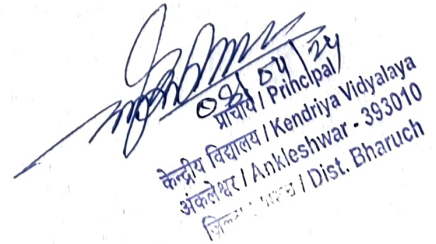 08/04/24
प्राचार्य / Principal
केन्द्रीय विद्यालय / Kendriya Vidyalaya
अंकलेश्वर / Ankleshwar - 393010
/ Dist. Bharuch